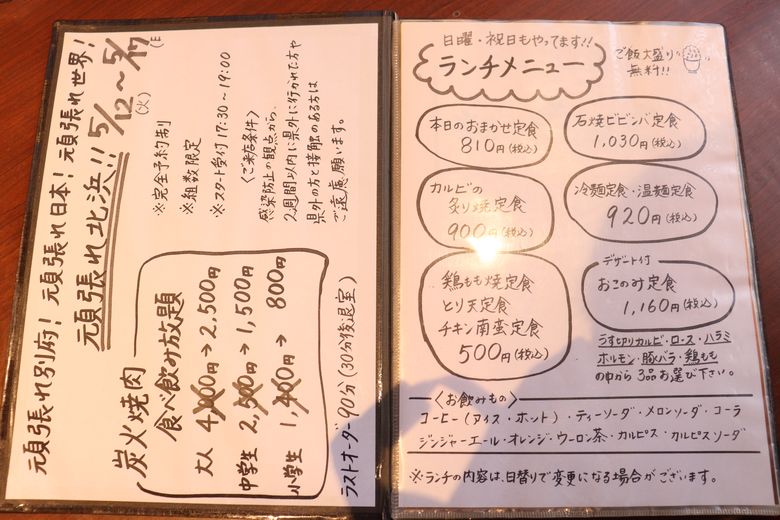 頑張れ別府!頑張れ日本!頑張れ世界!
頑張れ北浜!!5/12〜5/17
(火)
(日
炭火焼肉
食べ飲み放題
大人 4,000円→2,500円
中学生 2,500円→1,500円
小学生 1,400円→800円
ラストオーダー90分(30分後退室)
※完全予約制
※組数限定
※スタート受付17:30~19:00
〈ご来店条件〉
感染防止の観点から、
2週間以内に県外に行かれた方や
県外の方と接触のある方は
ご遠慮願います。
日曜・祝日もやってます!!
ランチメニュー
ご飯大盛り
無料!!
本日のおまかせ定食
810円(税込)
石焼ビビンバ定食
1,030円(税込)
カルビの
炙り焼定食
900円(税込)
冷麺定食・温麺定食
920円(税込)
鶏もも焼定食
とり天定食
チキン南蛮定食
500円(税込)
デザート付
おこのみ定食
1,160円(税込)
うす切りカルビ・ロース・ハラミ
ホルモン・豚バラ・鶏もも
の中から3品お選び下さい。
〈お飲みもの〉
コーヒー(アイス・ホット)・ティーソーダ・メロンソーダ・コーラ
ジンジャーエール・オレンジ・ウーロン茶・カルピス・カルピスソーダ
※ランチの内容は、日替りで変更になる場合がございます。